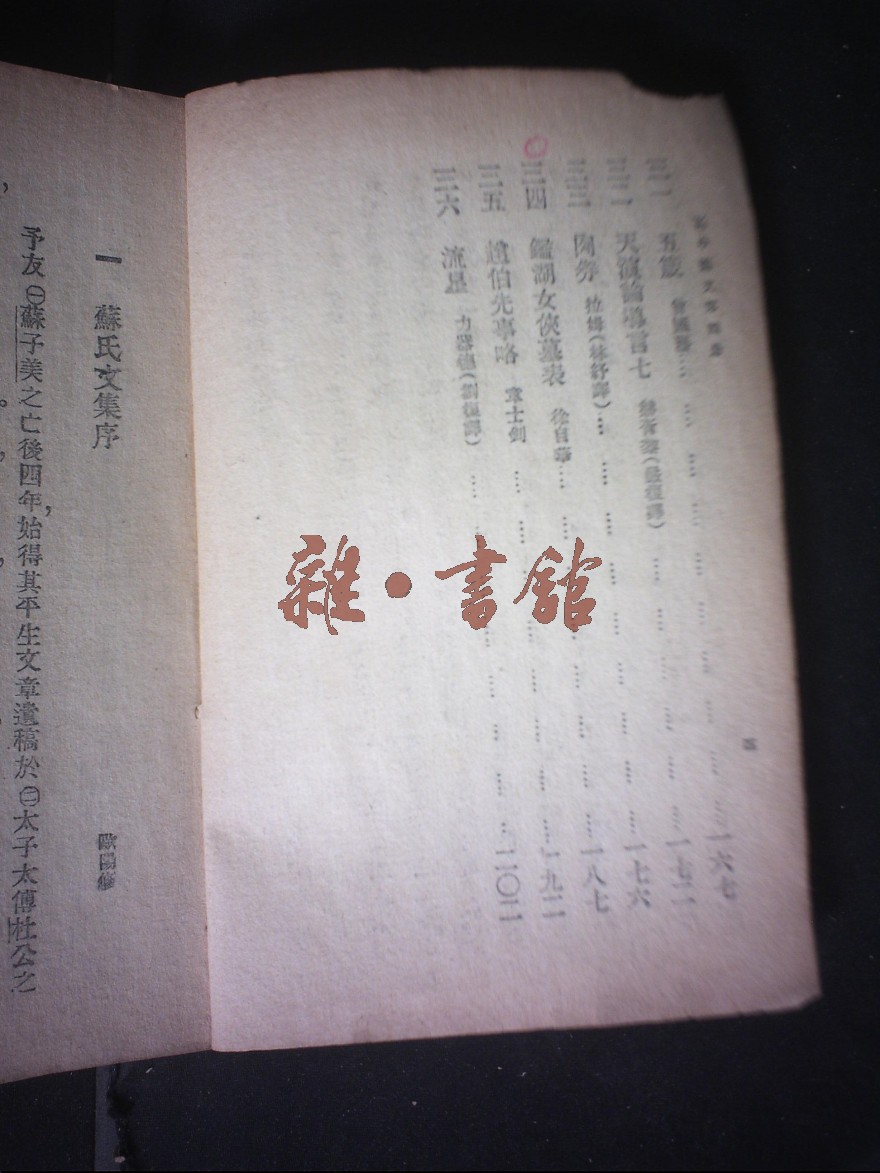 三一 五箴 曾國藩 一六七
三二 天演論導言七 赫胥黎（嚴復譯） 一七二
三三 肉券 拉姆（林紓譯） 一七六
三四 鑑湖女俠墓表 徐自華 一八七
三五 趙伯先事略 章士釗 一九二
三六 流星 力器德（劉復譯） 二〇二
一 蘇氏文集序
歐陽修
予友㊀蘇子美之亡後四年，始得其平生文章遺稿於㊁太子太傅杜公之
雜·書館